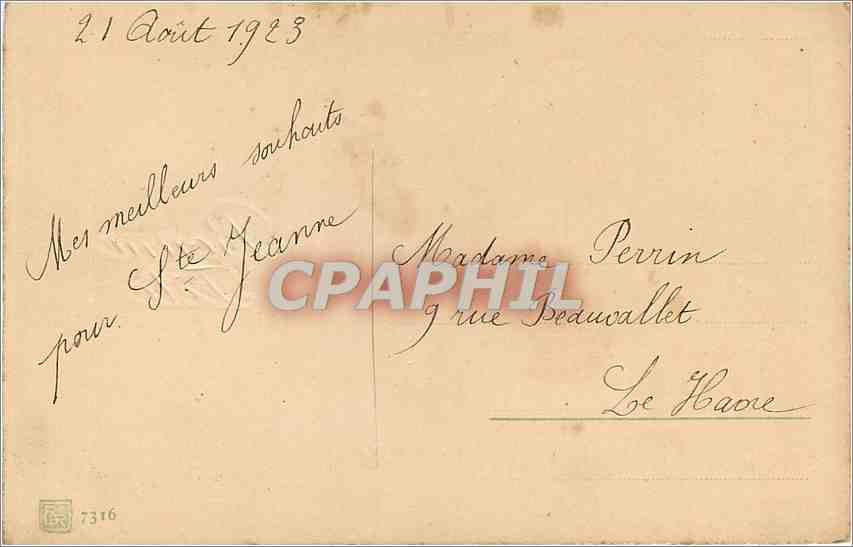 21 Août 1923
Mes meilleurs souhaits
pour Ste Jeanne
CPAPHIL
Madame Perrin
9 rue Beauvallet
Le Havre
7316